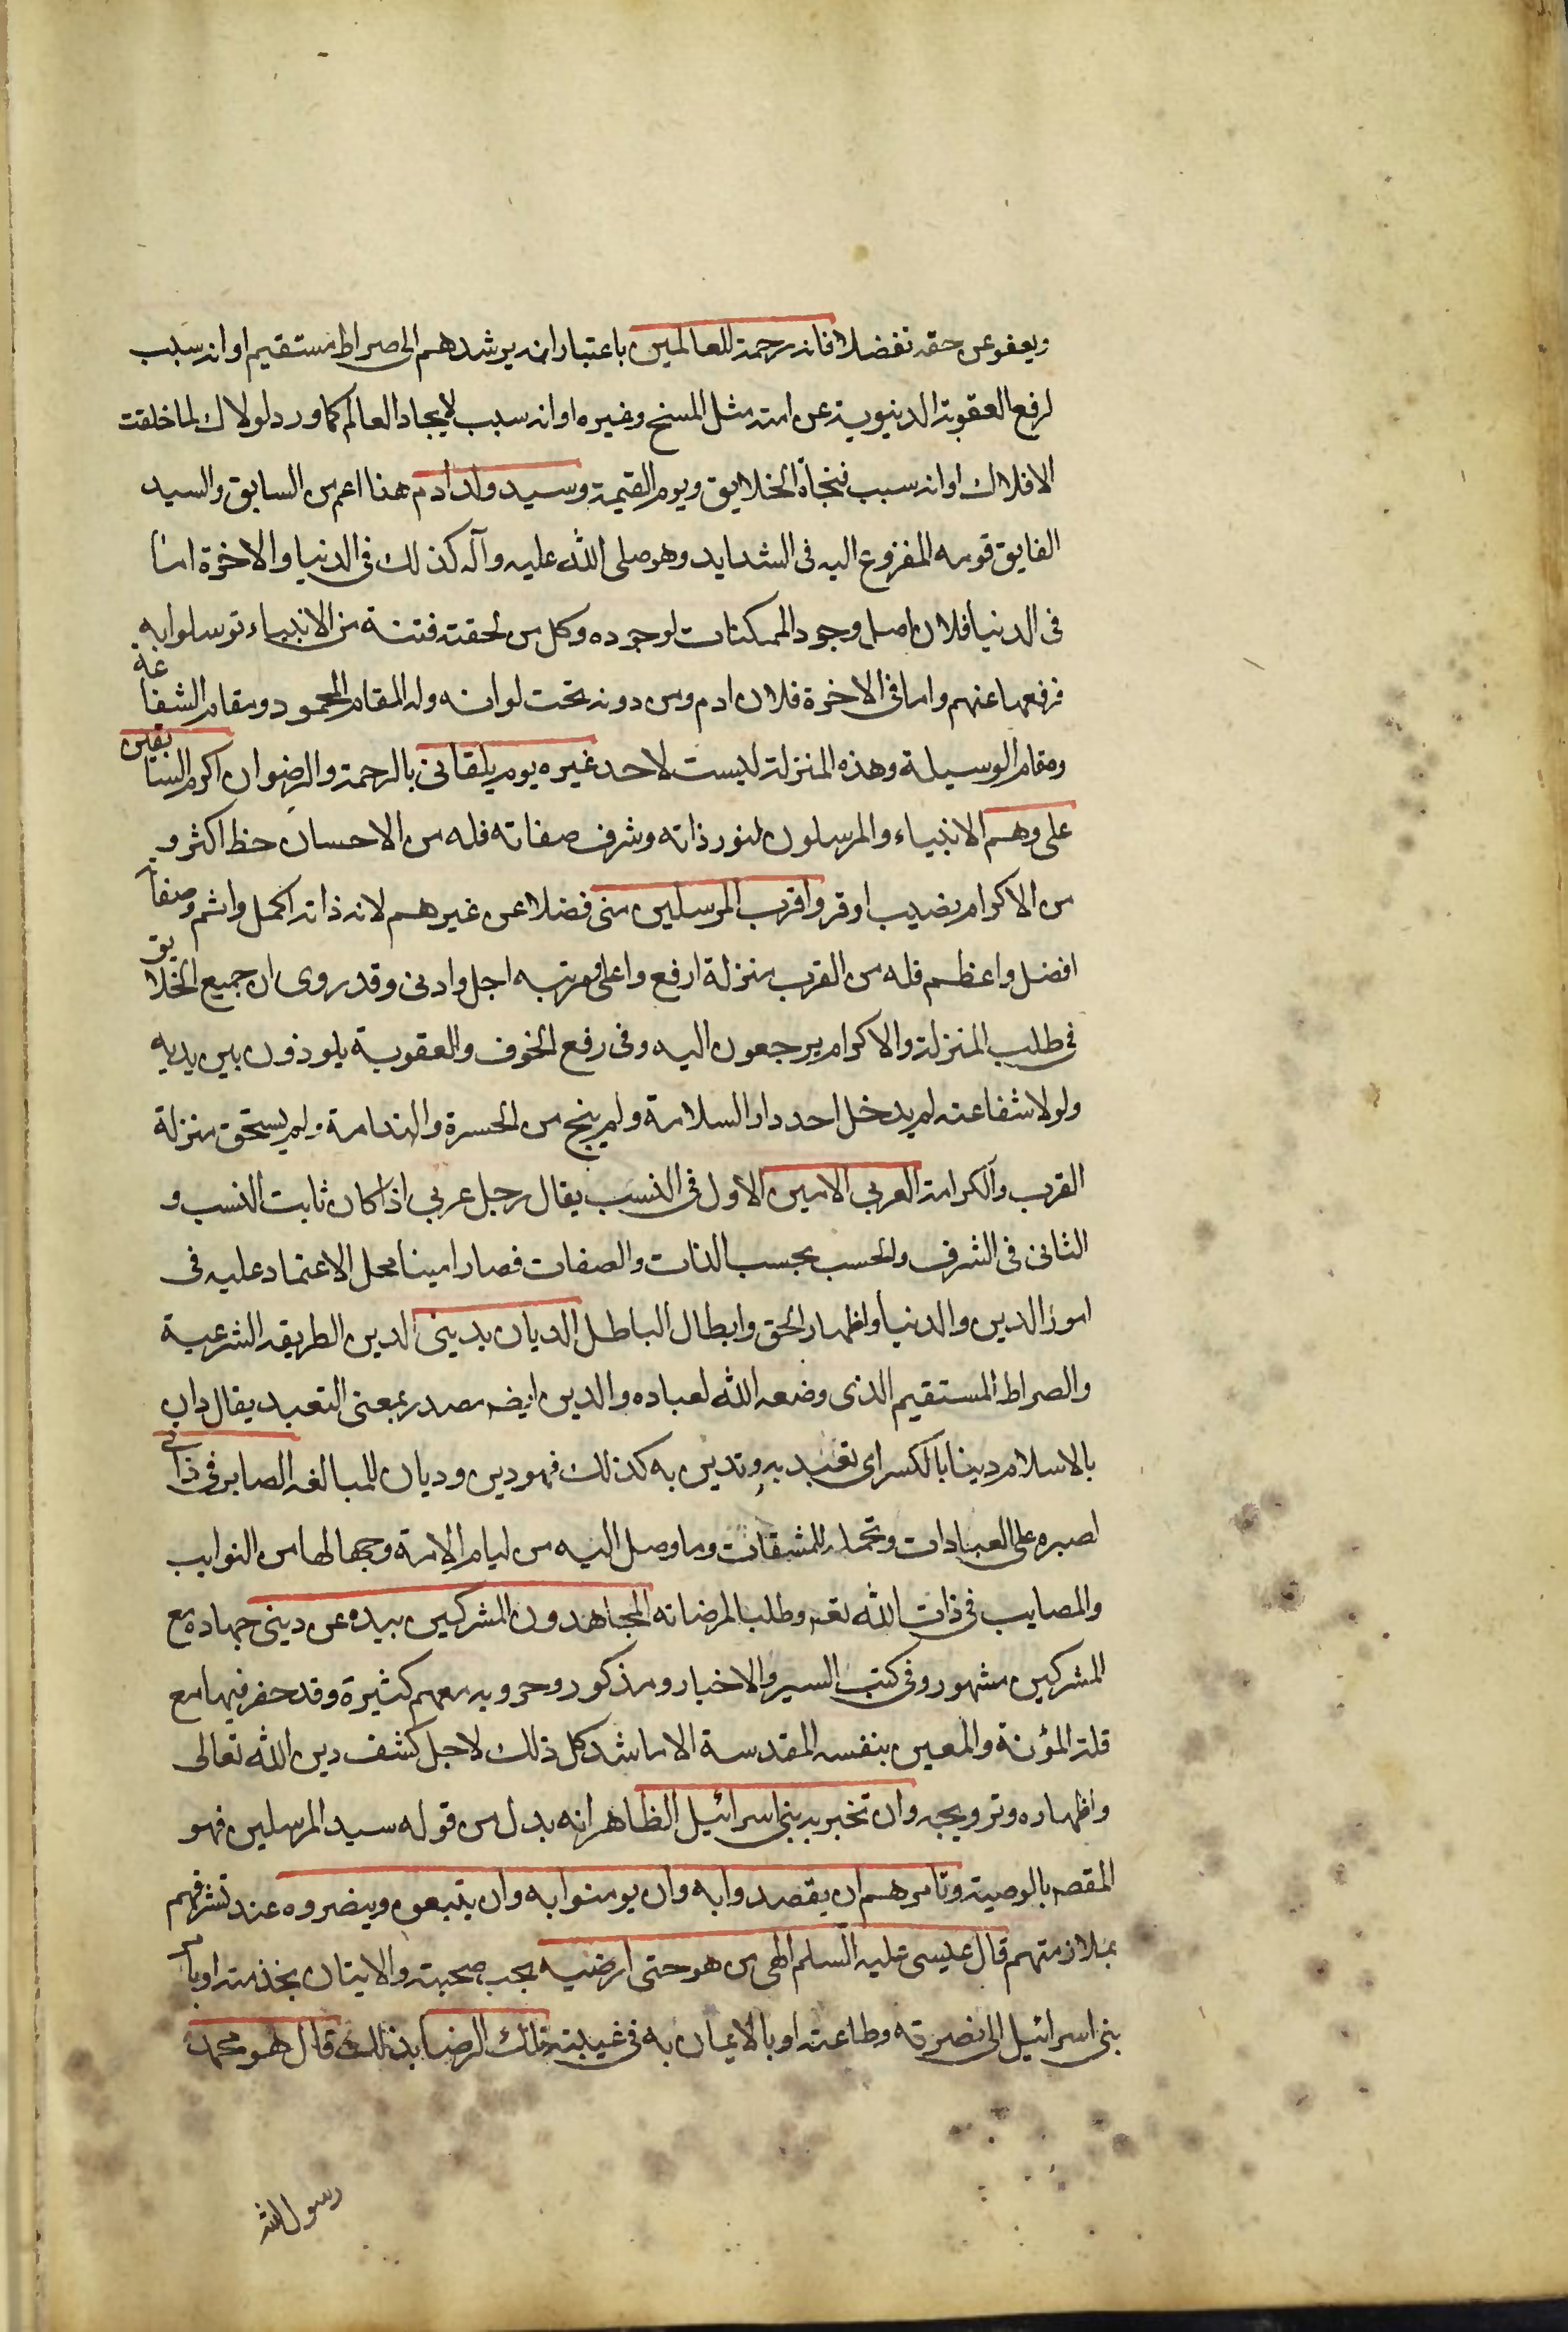 ويعفو عن حقه تفضلا فانه رحمة للعالمين باعتبار انه يرشدهم الى صراط مستقيم او انه سبب
لرفع العقوبة الدنيوية عن امته مثل المسخ وغيره او انه سبب لايجاد العالم كما ورد لولاك لما خلقت
الافلاك او انه سبب لنجاة الخلايق ويوم القيمة وسيد ولد ادم هذا اعم من السابق والسيد
الفايق قومه المفزوع اليه في الشدايد وهو صلى الله عليه وآله كذلك في الدنيا والاخرة اما
في الدنيا فلان اصل وجود الممكنات لوجوده وكل من لحقته فتنة من الانبياء توسلوا به
فرفعها عنهم واما في الاخرة فلان ادم ومن دونه تحت لوائه وله المقام المحمود ومقام الشفاعة
ومقام الوسيلة وهذه المنزلة ليست لاحد غيره يوم يلقاني بالرحمة والرضوان اكرم السابقين
على وهم الانبياء والمرسلون لنور ذاته وشرف صفاته فله من الاحسان حظ اكثر و
من الاكرام نصيب اوفر واقرب المرسلين مني فضلا عن غيرهم لانه ذاته اكمل واتم وصفاته
افضل واعظم فله من القرب منزلة ارفع واعلى ومرتبه اجل وادنى وقد روى ان جميع الخلايق
في طلب المنزلة والاكرام يرجعون اليه وفي رفع الخوف والعقوبة يلوذون بين يديه
ولولا شفاعته لم يدخل احد دار السلامة ولم ينج من الحسرة والندامة ولم يستحق منزلة
القرب والكرامة العربي الامين الاول في النسب يقال رجل عربي اذا كان ثابت النسب و
الثاني في الشرف والحسب بحسب الذات والصفات فصار امينا محل الاعتماد عليه في
امور الدين والدنيا واظهار الحق وابطال الباطل الديان بديني الدين الطريقه الشرعية
والصراط المستقيم الذى وضعه الله لعباده والدين ايضه مصدر بمعنى التعبد يقال دان
بالاسلام دينا بالكسر اى تعبد به وتدين به كذلك فهو دين وديان للمبالغه الصابر في ذاتي
لصبره على العبادات وتحمله للمشقات وما وصل اليه من ليام الامة وجهالها من النوايب
والمصايب في ذات الله تعه وطلبا لمرضاته المجاهدون المشركين بيده عن ديني جهاده مع
المشركين مشهور وفي كتب السير والاخبار ومذكور وحروبه معهم كثيرة وقد حضر فيها مع
قلة المؤنة والمعين بنفسه المقدسة الا ما شد كل ذلك لاجل كشف دين الله تعالى
واظهاره وترويجه وان تخبر به بني اسرائيل الظاهر انه بدل من قوله سيد المرسلين فهو
المقصه بالوصية وتامرهم ان يقصدوا به وان يومنوا به وان يتبعوه وينصروه عند تشرفهم
بملازمتهم قال عيسى عليه السلم الهى من هو حتى ارضيه يجب صحبته والاتيان بخذمته او بامر
بني اسرائيل الى نصرته وطاعته او بالايمان به في غيبته فلك الرضا بذلك قال هو محمد
رسول الله